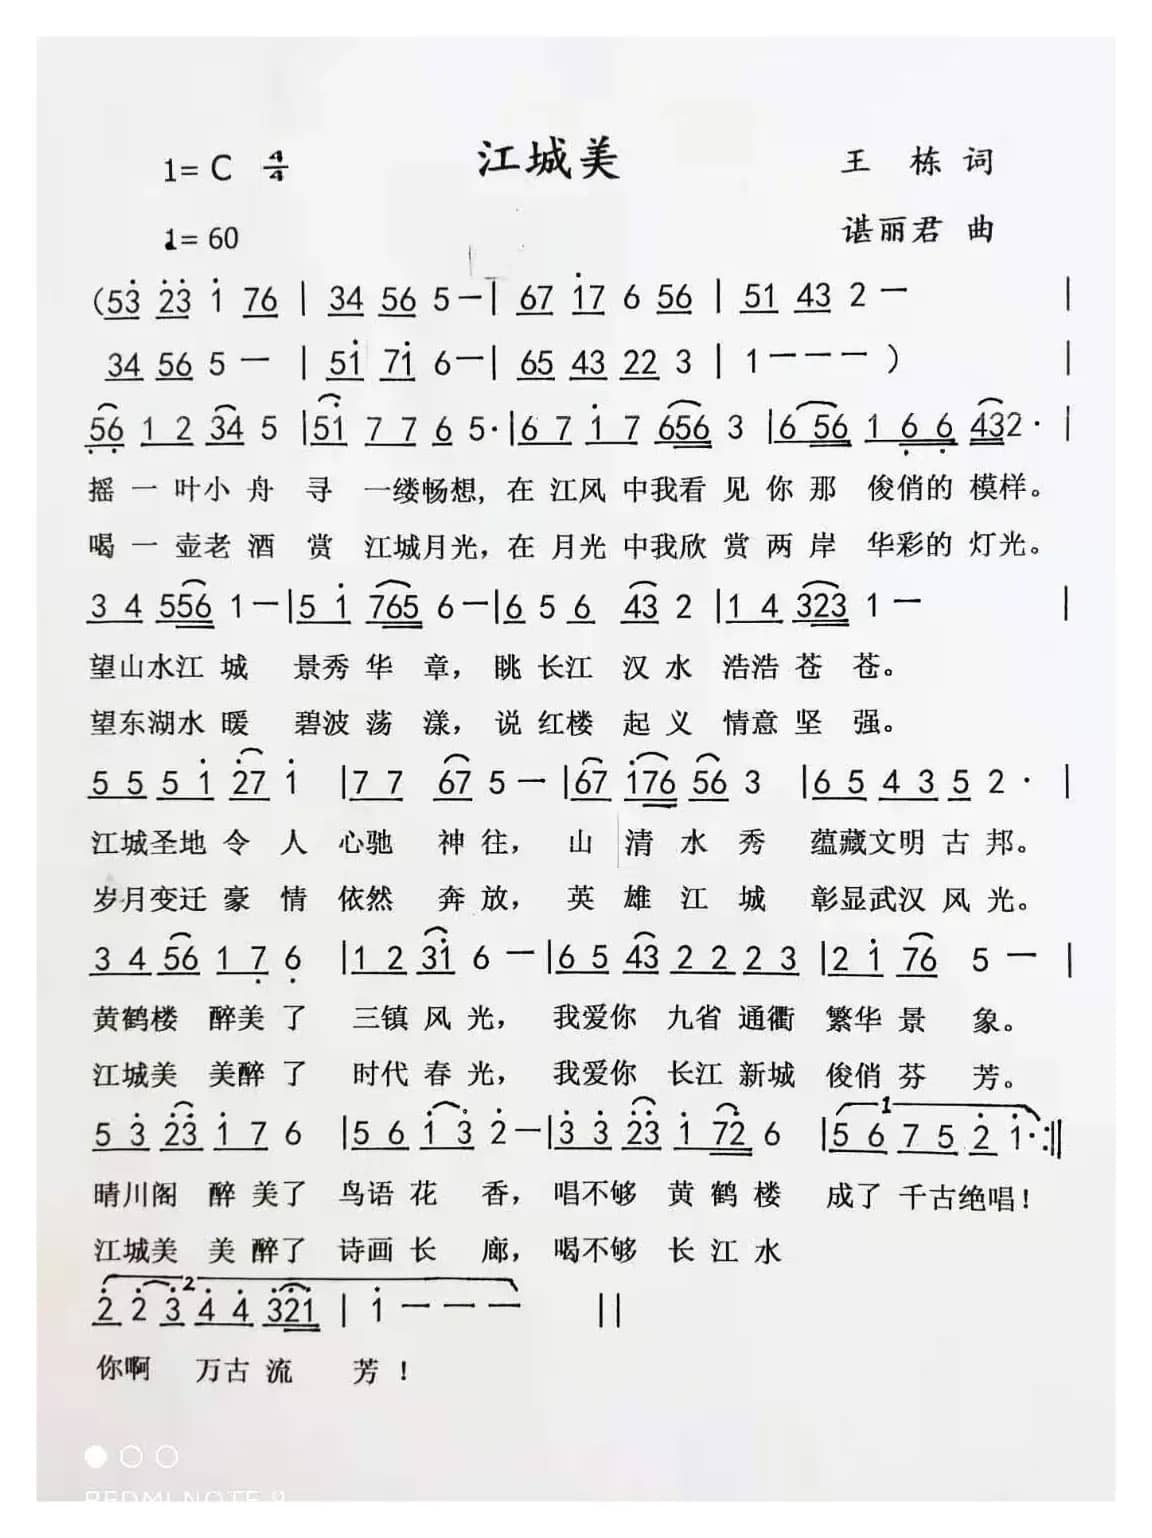 江城美
1= C 4/4
王 栋 词
1= 60
谌丽君 曲
(53 23 1 76 | 34 56 5 — | 67 17 6 56 | 51 43 2 — |
34 56 5 — | 51 71 6 — | 65 43 22 3 | 1 — — — ) |
56 1 2 34 5 | 51 7 7 6 5· | 6 7 1 7 656 3 | 6 56 1 6 6 432· |
摇一叶小舟 寻 一缕畅想, 在江风中我看见你那 俊俏的模样。
喝一壶老酒 赏 江城月光, 在月光中我欣赏两岸 华彩的灯光。
3 4 556 1 — | 5 1 765 6 — | 6 5 6 43 2 | 1 4 323 1 — |
望山水江城 景秀华章, 眺长江 汉水 浩浩苍苍。
望东湖水暖 碧波荡漾, 说红楼 起义 情意坚强。
5 5 5 1 27 1 | 7 7 67 5 — | 67 176 56 3 | 6 5 4 3 5 2· |
江城圣地令人 心驰 神往, 山清水秀 蕴藏文明古邦。
岁月变迁豪情 依然 奔放, 英雄江城 彰显武汉风光。
3 4 56 1 7 6 | 1 2 31 6 — | 6 5 43 2 2 2 3 | 2 1 76 5 — |
黄鹤楼 醉美了 三镇风光, 我爱你 九省通衢 繁华景象。
江城美 美醉了 时代春光, 我爱你 长江新城 俊俏芬芳。
5 3 23 1 7 6 | 5 6 1 3 2 — | 3 3 23 1 72 6 | 1 5 6 7 5 2 1· :||
晴川阁 醉美了 鸟语花香, 唱不够 黄鹤楼 成了千古绝唱!
江城美 美醉了 诗画长廊, 喝不够 长江水
2 2 2 3 4 4 321 | 1 — — — ||
你啊 万古流芳!
REDMI NOTE 9